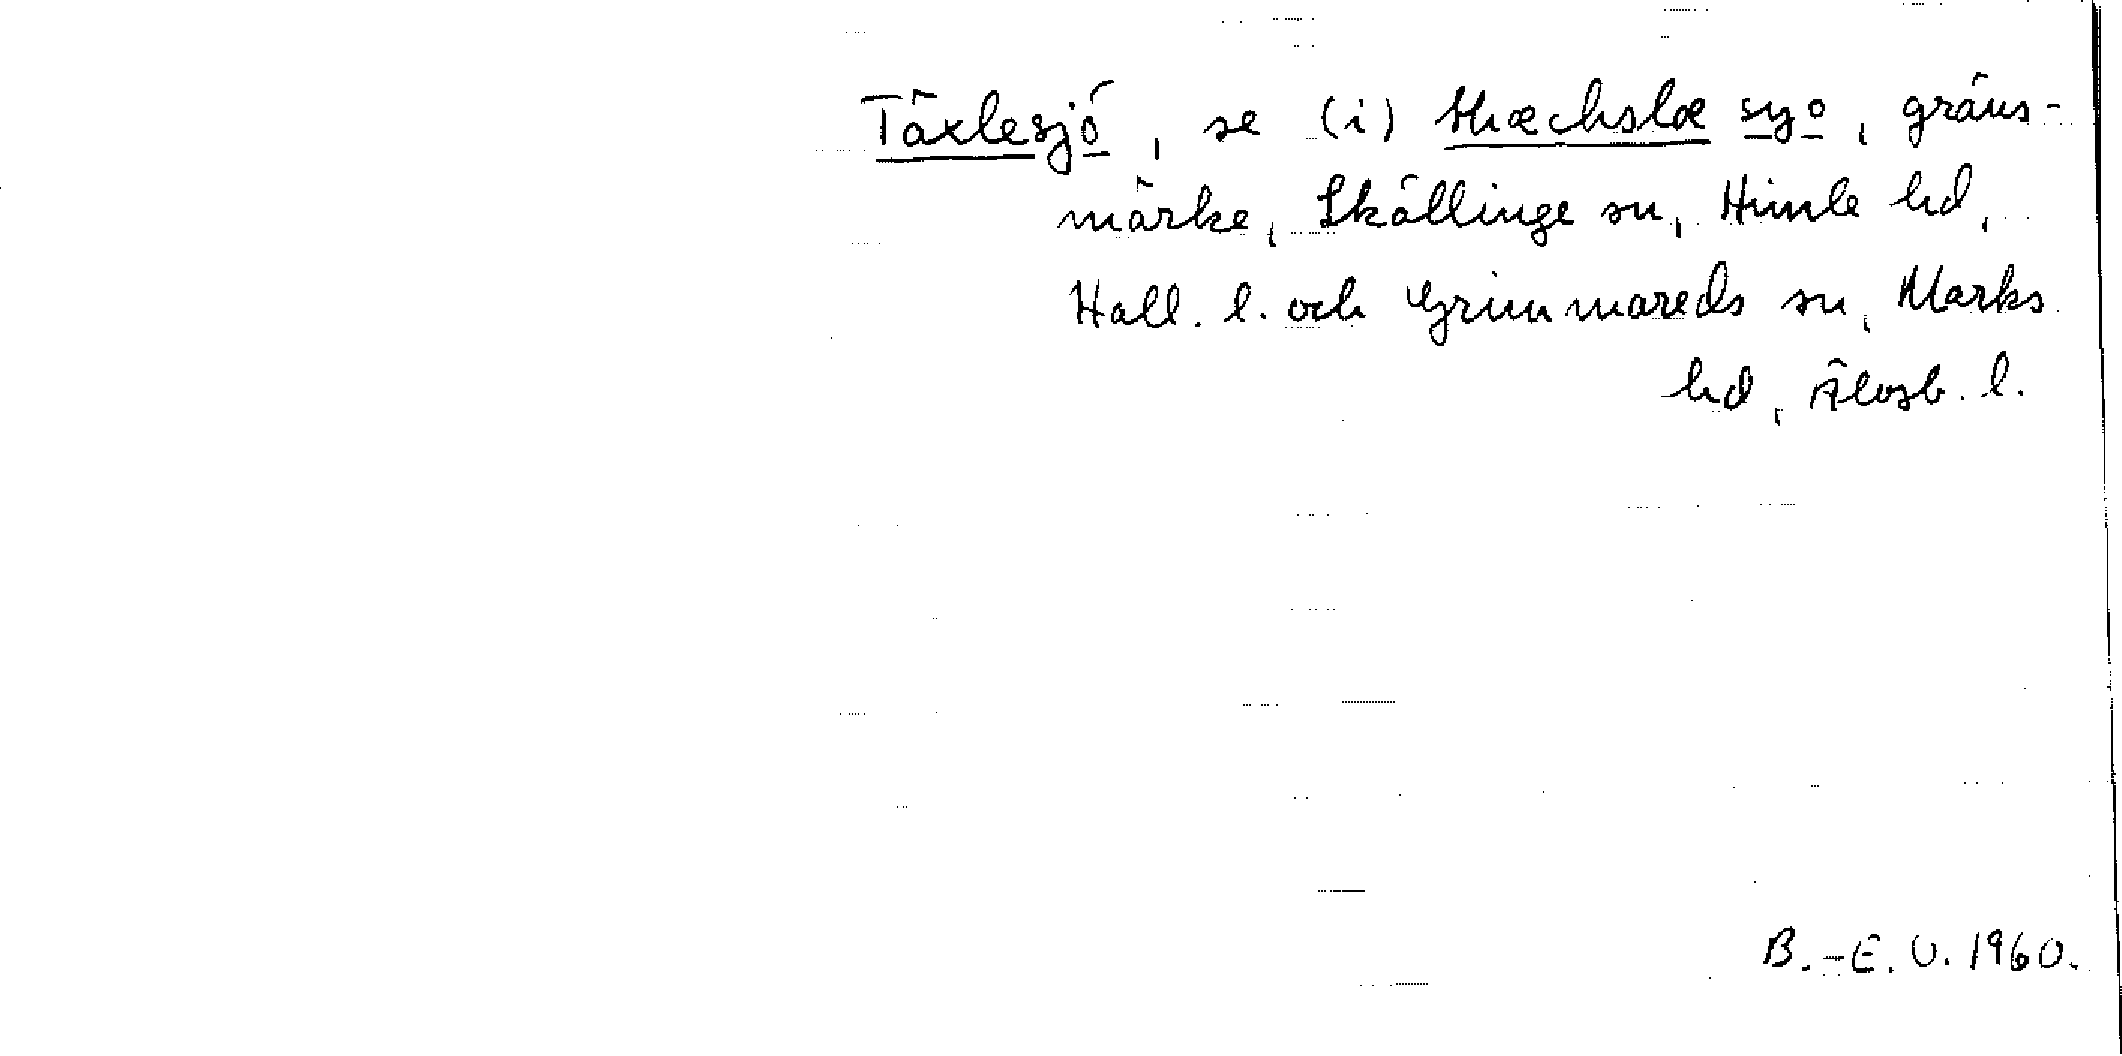 Täxlesjö, se (i) thæchslæ syo, gräns-
märke, Skällinge sn, Himle hd,
Hall. l. och Grimmareds sn, Marks
hd, Älvsb. l.
B.-E. U. 1960.